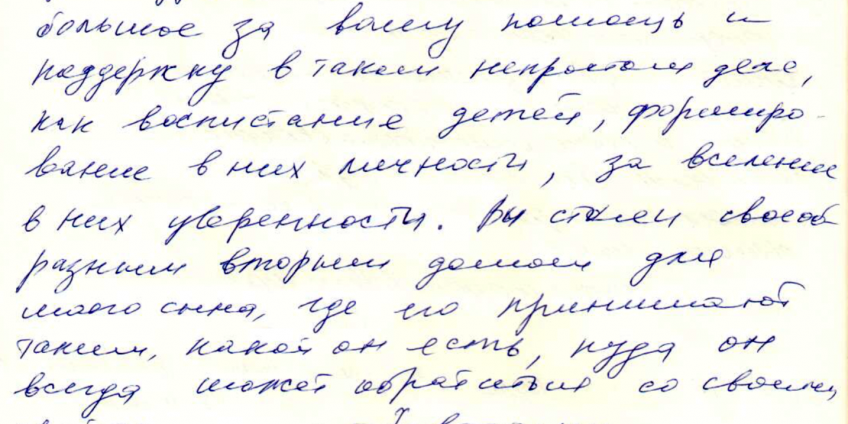 большое за вашу помощь и
поддержку в таком непростом деле,
как воспитание детей, формиро-
вание в них личности, за вселение
в них уверенности. Вы стали своеоб
разным вторым домом для
моего сына, где его принимают
таким, какой он есть, куда он
всегда может обратиться со своими